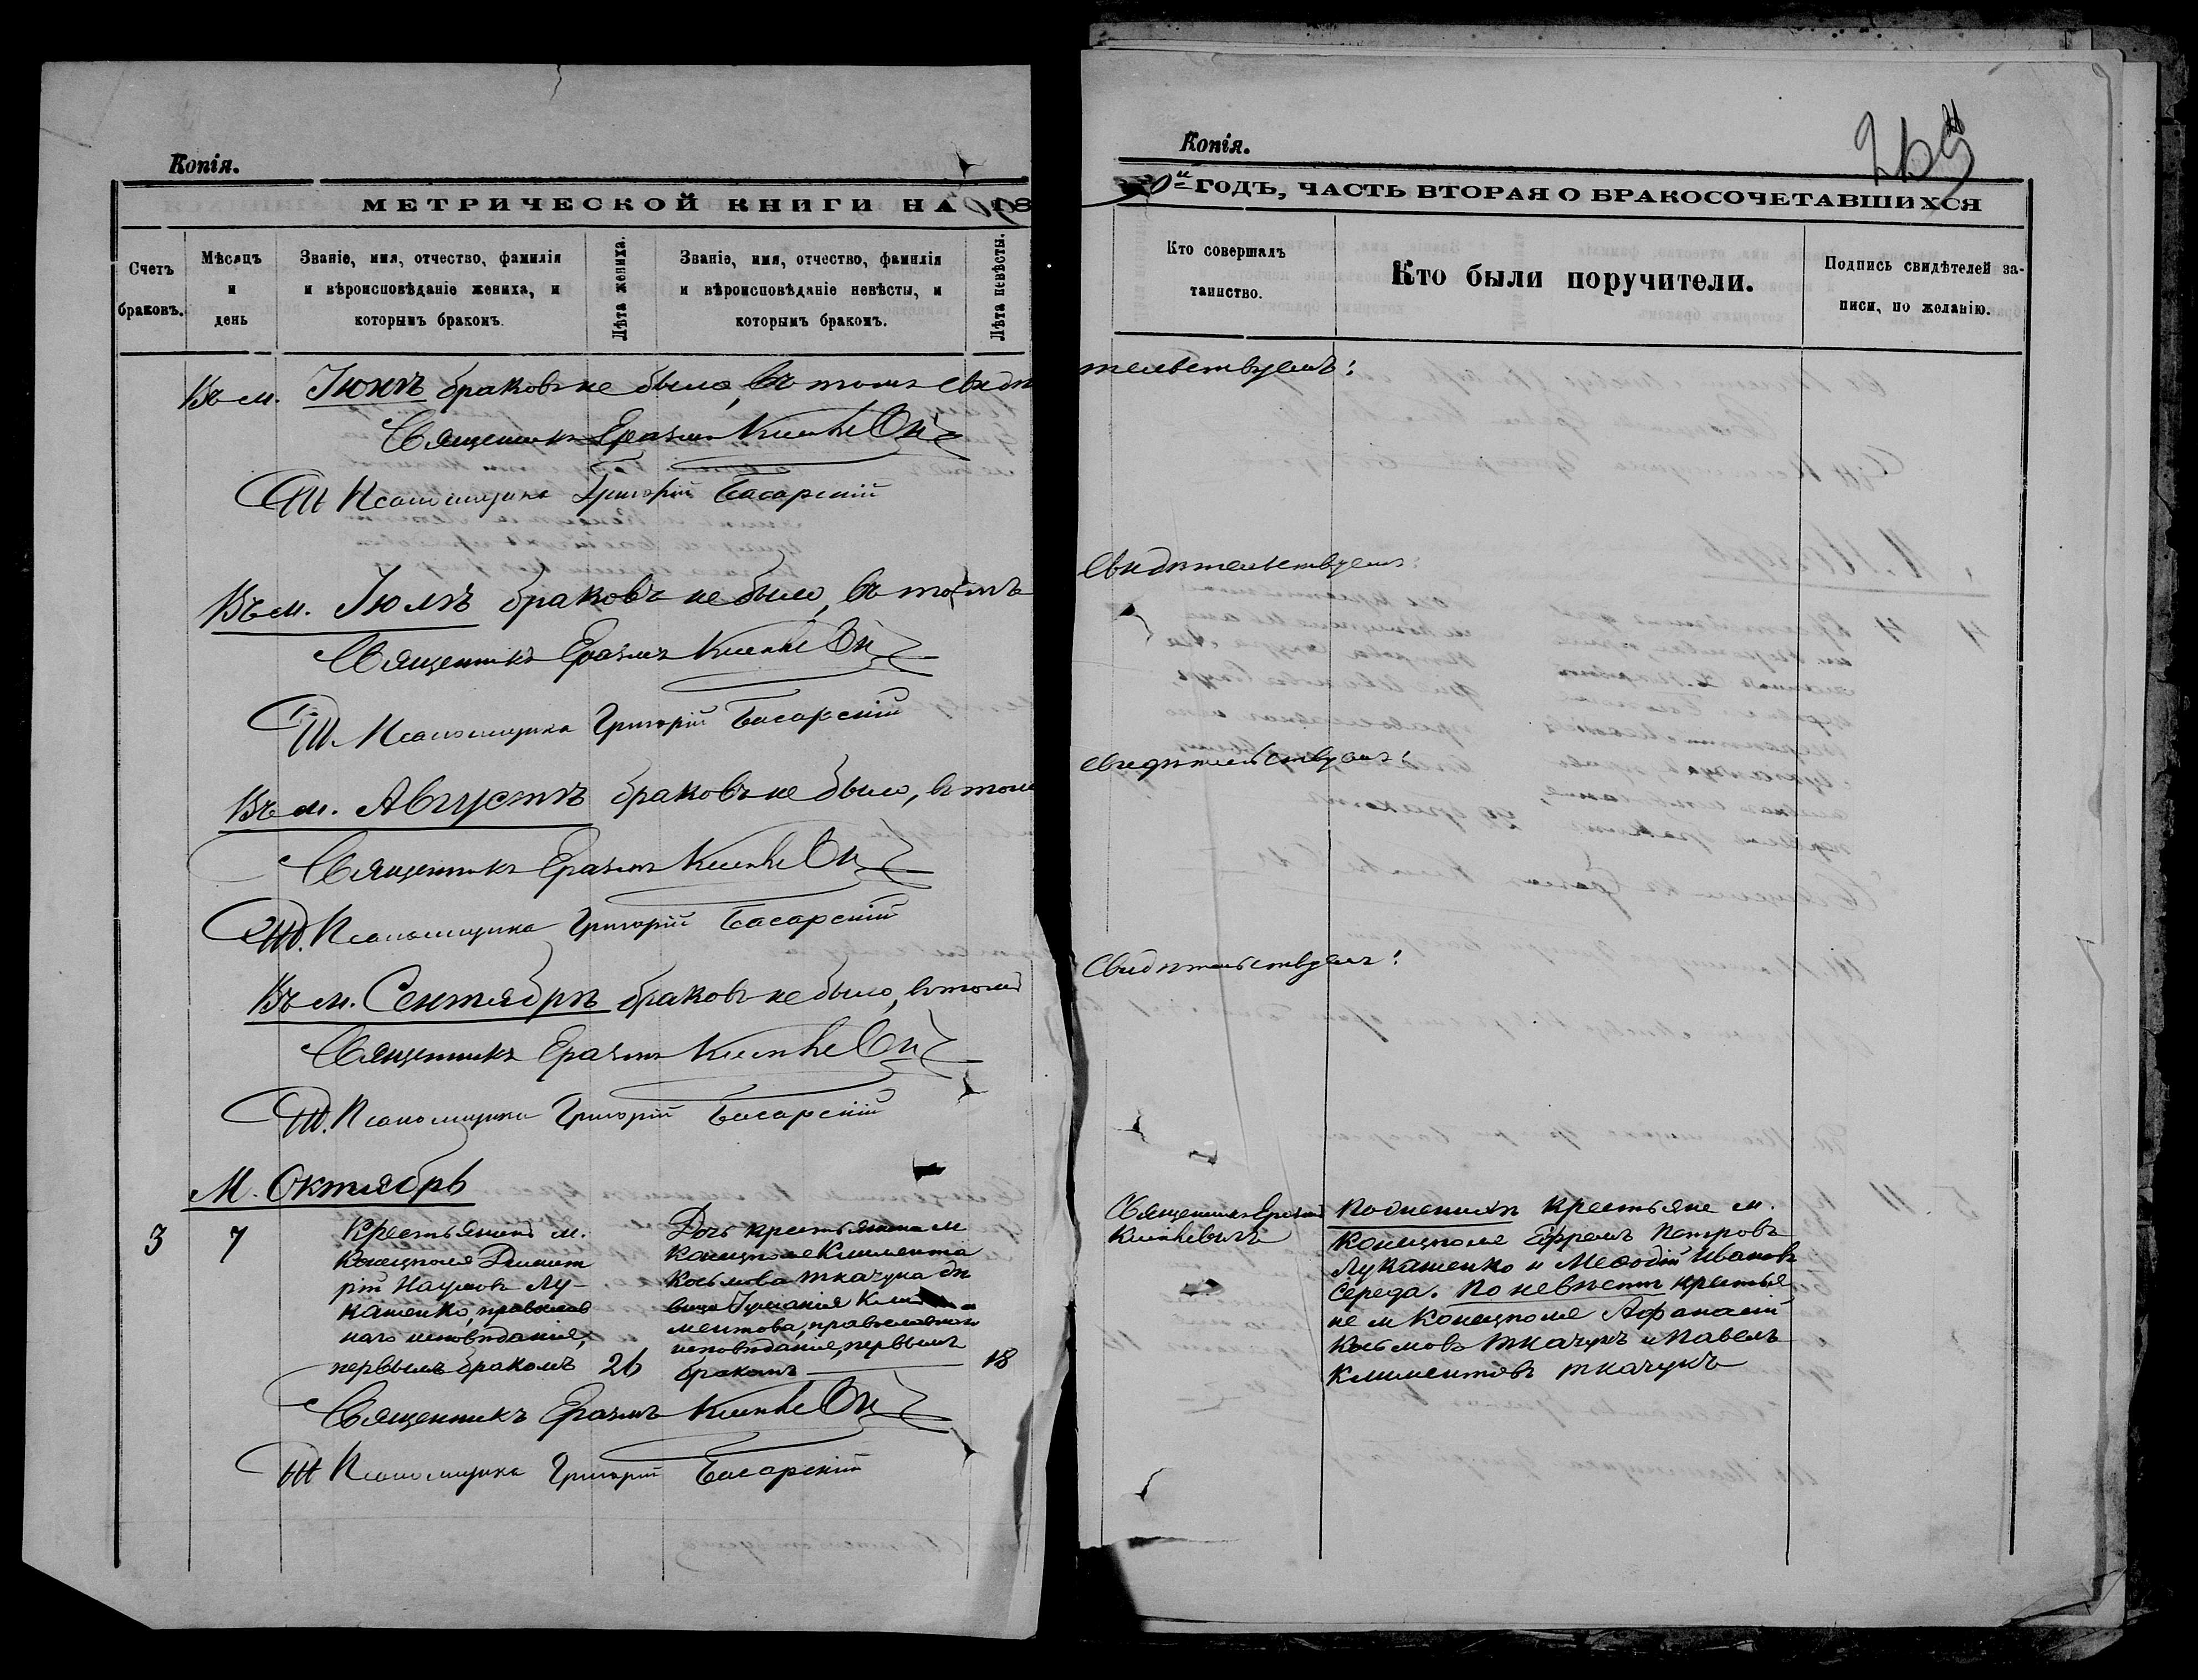 Копія.
МЕТРИЧЕСКОЙ КНИГИ НА 18
Счетъ браковъ.
Мѣсяцъ и день
Званіе, имя, отчество, фамилія и вѣроисповѣданіе жениха, и которымъ бракомъ.
Лѣта жениха.
Званіе, имя, отчество, фамилія и вѣроисповѣданіе невѣсты, и которымъ бракомъ.
Лѣта невѣсты.
Въ м. Іюнѣ браковъ не было, въ томъ свидѣ
Священникъ Еразмъ
Псаломщика Григорій Басарскій
Въ м. Іюлѣ браковъ не было, въ томъ
Священникъ Еразмъ
Псаломщика Григорій Басарскій
Въ м. Августѣ браковъ не было, въ томъ
Священникъ Еразмъ
Псаломщика Григорій Басарскій
Въ м. Сентябрѣ браковъ не было, въ томъ
Священникъ Еразмъ
Псаломщика Григорій Басарскій
М. Октябрь
3 7
Крестьянинъ м.
Конецполя Димит
рій Наумовъ Лу-
кашенко, православ
наго исповѣданія,
первымъ бракомъ 26
Дочь крестьянина м
Конецполя Климента
Косьмова Ткачука дѣ
вица Іуліанія Кли
ментова, православнаго
исповѣданія, первымъ
бракомъ 18
Священникъ Еразмъ
Псаломщика Григорій Басарскій
Копія.
269
0й ГОДЪ, ЧАСТЬ ВТОРАЯ О БРАКОСОЧЕТАВШИХСЯ
Кто совершалъ таинство.
Кто были поручители.
Подпись свидѣтелей за-
писи, по желанію.
тельствуемъ:
свидѣтельствуемъ:
свидѣтельствуемъ:
свидѣтельствуемъ:
Священникъ Еразмъ
По женихѣ крестьяне м.
Конецполя Ефремъ Петровъ
Лукашенко и Меѳодій Ивановъ
Середа. По невѣстѣ крестья
не м Конецполя Афанасій
Косьмовъ Ткачукъ и Павелъ
Климентовъ Ткачукъ